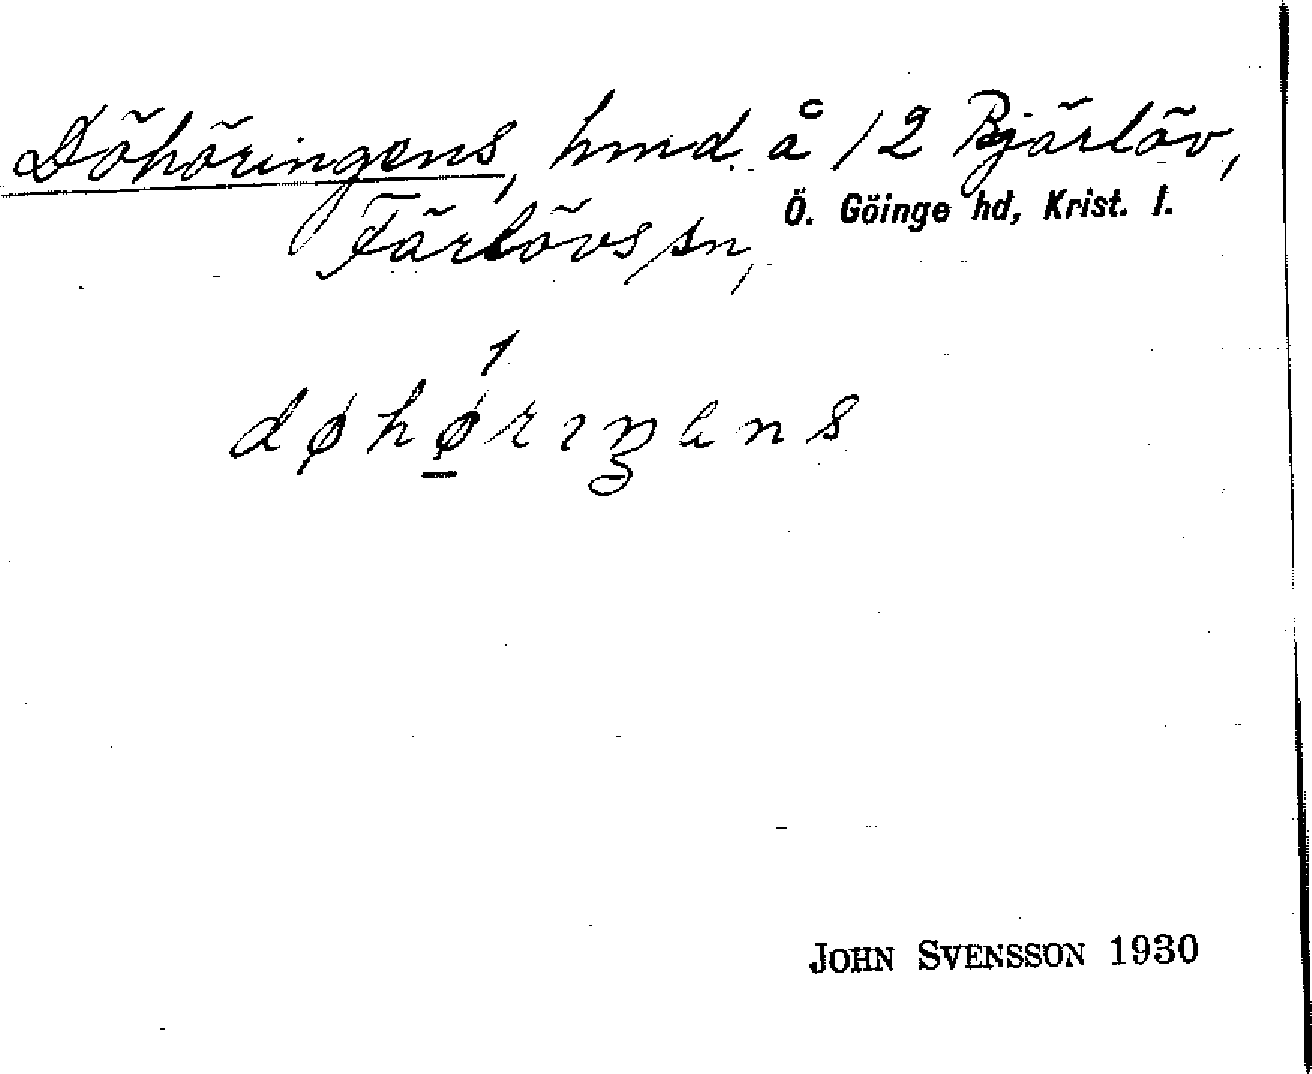 Döhöringens, hmd. å 12 Bjärlöv,
Färlövs sn, Ö. Göinge hd, Krist. l.
døhø̱rıŋens
JOHN SVENSSON 1930